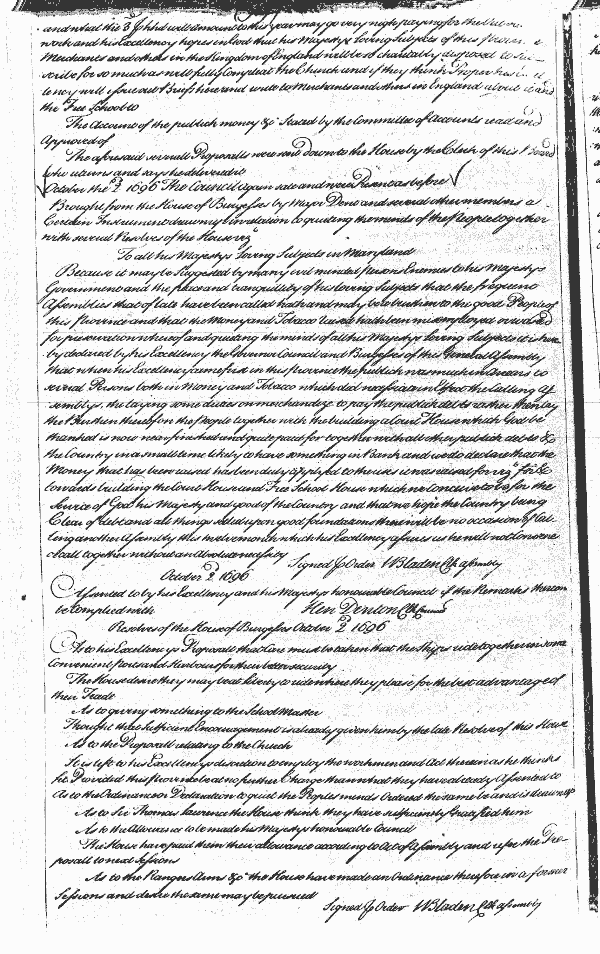 and what the 3 P hhd will amount to this year may go very nigh paying for the
work and his Excellency hopes in God that his Majestys Loving Subjects of this Province
Merchants and others in the Kingdom of England will be so charitably disposed to Sub-
scribe for so much as will fully Compleat the Church and if they think Proper his
lency will issue out Briefs here and write to Merchants and others in England about it and
the Free School to
The Account of the publick money &c Stated by the Committee of Accounts read and
Approved of
The aforesaid severall Proposalls were sent down to the House by the Clerk of this Board
who returns and says he delivered it
October the 2d 1696 The Council again sate and were Present as before
Brought from the House of Burgesses by Major Dent and several other members a
Certain Instrument drawn up in relation to quieting the minds of the people together
with several Resolves of the House viz
To all his Majestys Loving Subjects in Maryland
Because it may be Suggested by many evil minded persons Enemies to his Majestys
Government and the peace and tranquility of his loving Subjects that the frequent
Assemblies that of late have been called hath and may be burthen to the good People of
this Province and that the Money and Tobacco raised hath been misemployed or wasted
for preservation whereof and quieting the minds of all his Majestys Loving Subjects it is here
by declared by his Excellency the Governor Council and Burgesses of this General Assembly
that when his Excellency came first in this Province the publick was much in Arrears to
several Persons both in Money and Tobacco which did necessitate in Effect the calling As
semblys, the laying some duties on merchandize to pay the publick debts rather than lay
the Burthen thereof on the People together with the building a Court House which God be
thanked is now near finished and quite paid for together with all other publick debts &c
the Country in a small time likely to have something in Bank and we do declare that the
Money that has been raised has been duly applyed to the uses it was raised for viz for &
towards building the Court House and Free School House which we conceive to be for the
Service of God his Majesty and good of the Country and that we hope the Country being
Clear of debt and all things settled upon good foundations there will be no occasion of Cal
ling another Assembly this twelve month which his Excellency assures us he will not Convene
or call together without an absolute necessity
Signed P Order W Bladen Clk assembly
October 2d 1696
Assented to by his Excellency and his Majestys honourable Council if the Remarks thereon
be Complied with Hen Denton Clk Council
Resolves of the House of Burgesses October 2d 1696
As to his Excellencys Proposall that Care must be taken that the Ships ride together in some
Convenient ports and Harbours for their better security
The House desire they may be at liberty to ride where they please for the best advantage of
their Trade
As to giving something to the School Master
Thought that Sufficient Encouragement is already given him by the late Resolve of this House
As to the Proposall relating to the Church
It is left to his Excellencys discretion to employ the workmen and Act therein as he thinks
fit Provided this Province be at no further Charge than what they have already Assented to
As to the Ordinance or Declaration to quiet the Peoples minds Ordered the same be and is drawn up
As to Sir Thomas Lawrence the House think they have sufficiently Gratified him
As to the Allowance to be made his Majestys honourable Council
The House have paid them their allowance according to Act of Assembly and refer the Pro-
posall to next Sessions
As to the Rangers Arms &c the House have made an Ordinance therefore in a former
Sessions and desire the same may be pursued
Signed P Order W Bladen Clk assembly